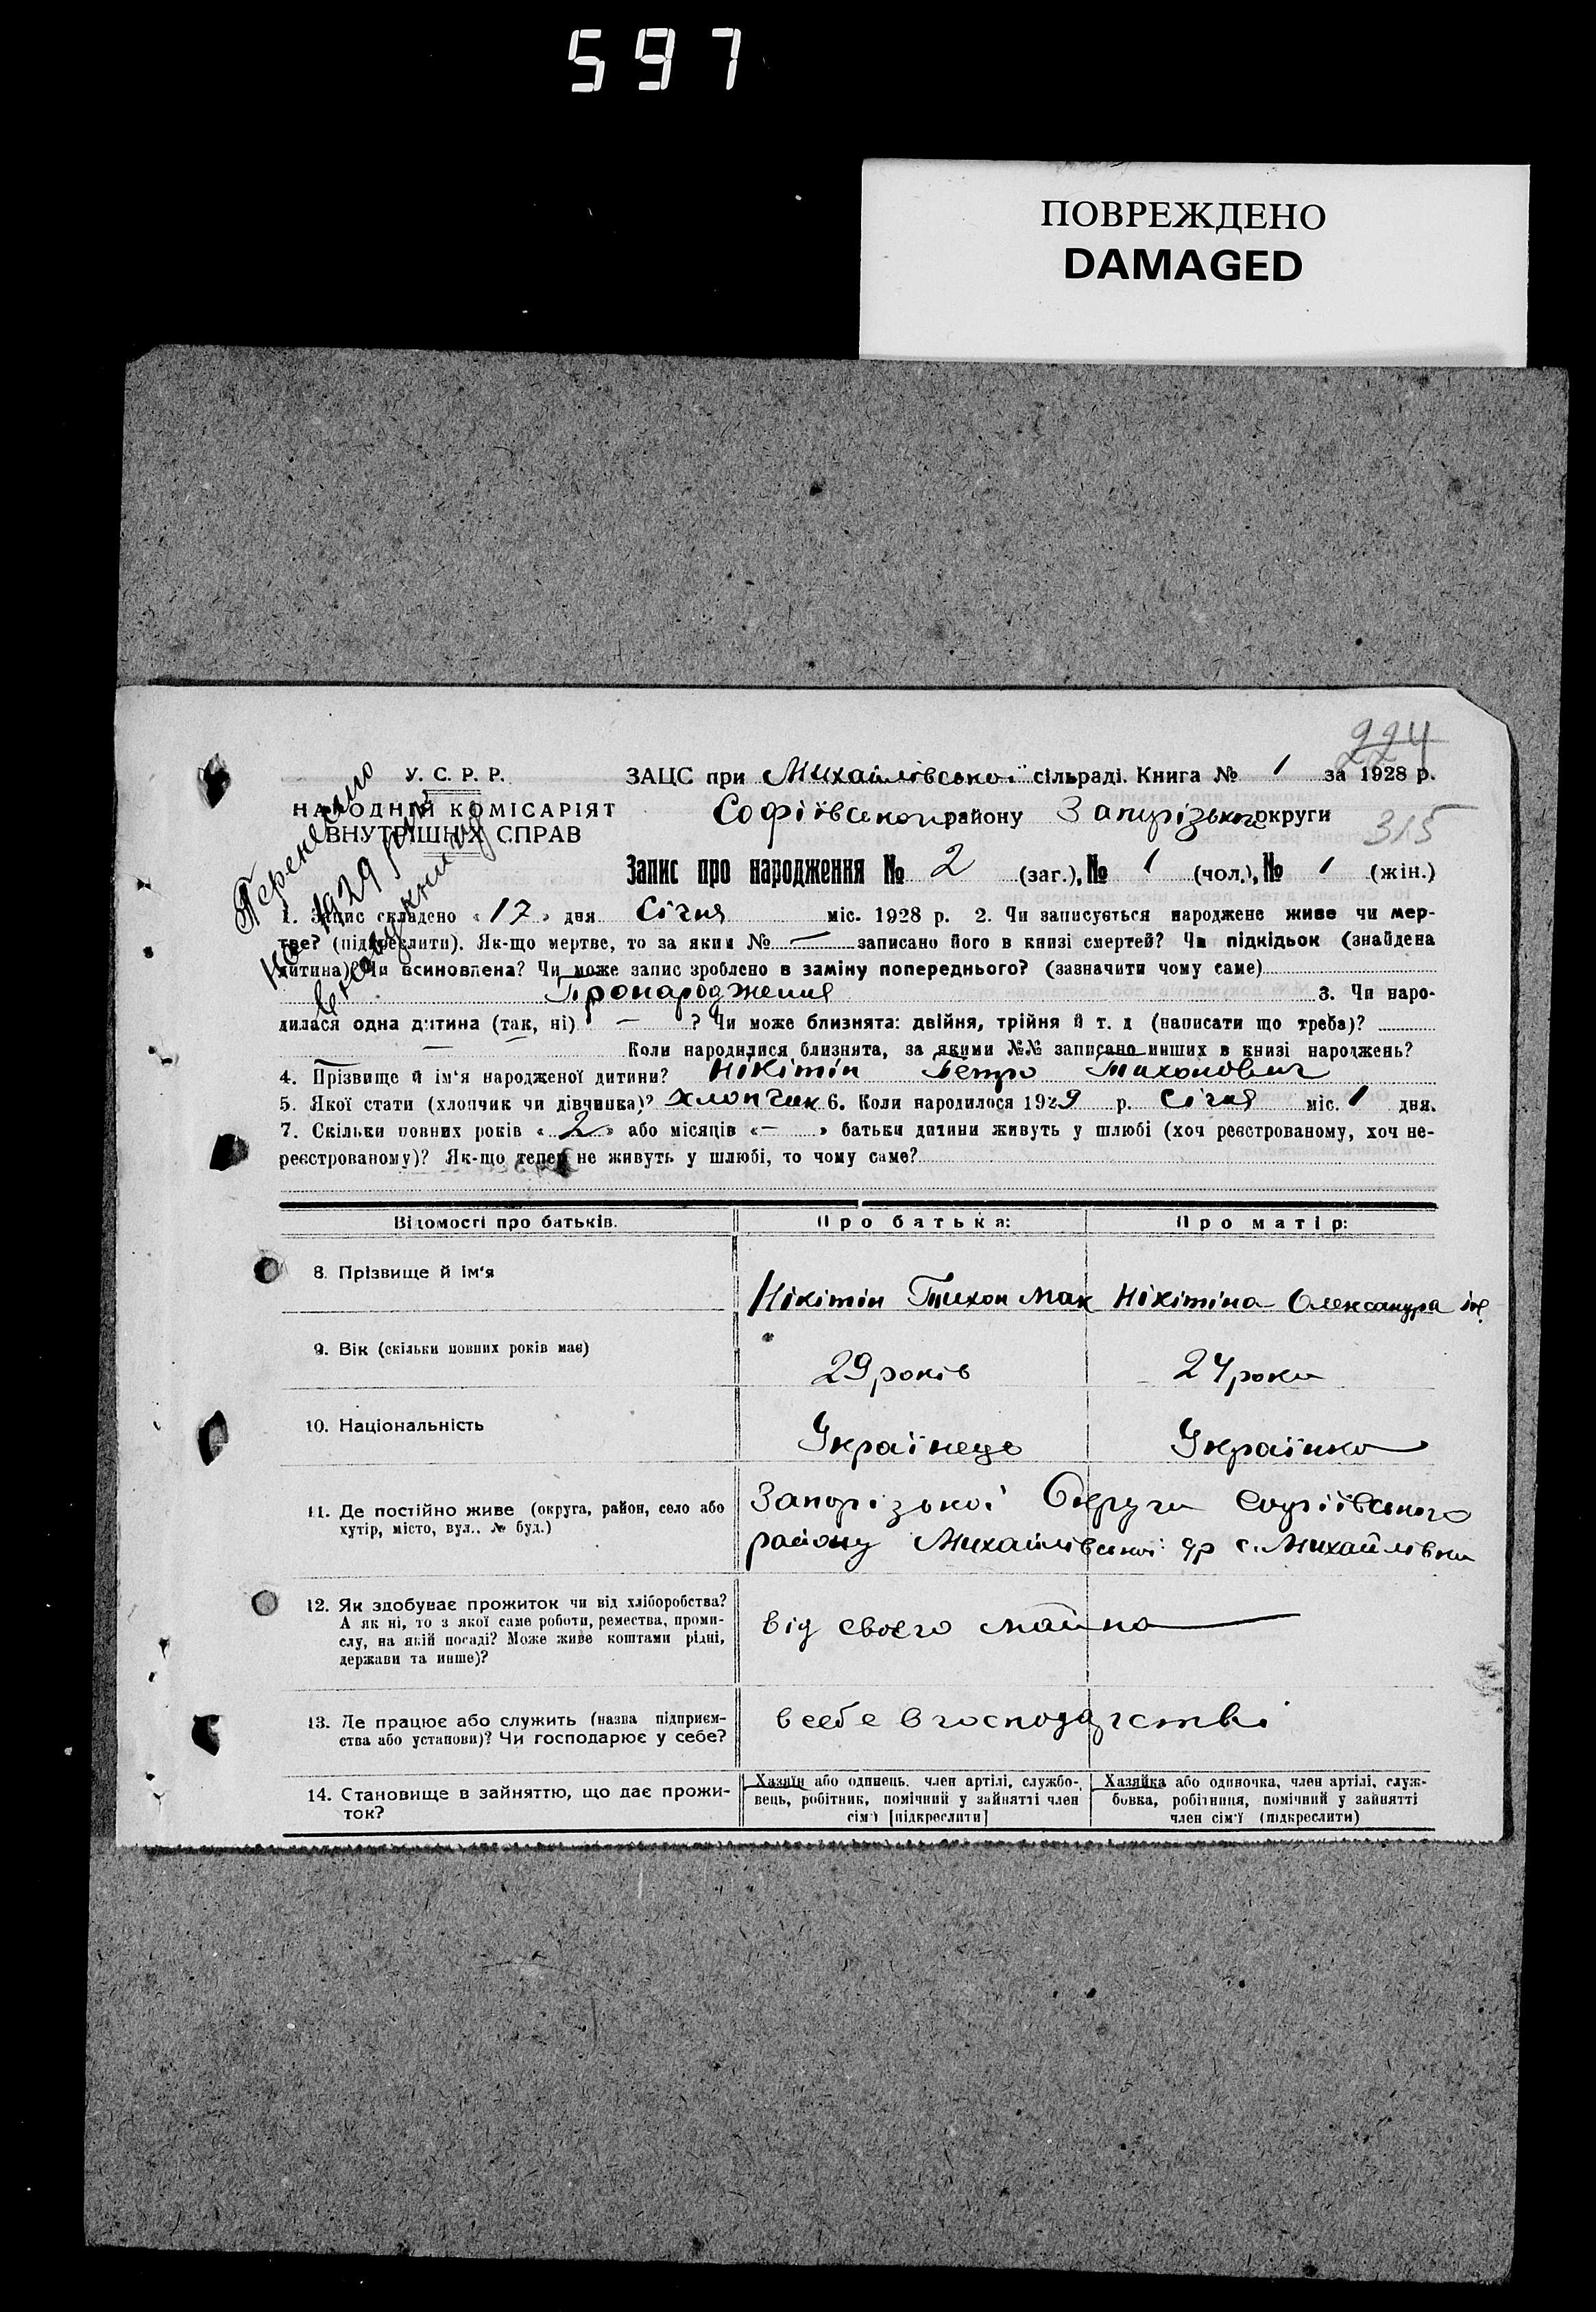 597
ПОВРЕЖДЕНО
DAMAGED
224
315
Перенесено
на 1929 рік
в нову книгу
У. С. Р. Р.
НАРОДНІЙ КОМІСАРІЯТ
ВНУТРІШНІХ СПРАВ
ЗАЦС при Михайлівської сільраді. Книга № 1 за 1928 р.
Софіївського району Запорізької округи
Запис про народження № 2 (заг.), № 1 (чол.), № 1 (жін.)
1. Запис складено «17» дня Січня міс. 1928 р. 2. Чи записується народжене живе чи мер-
тве? (підкреслити). Як-що мертве, то за яким № — записано його в книзі смертей? Чи підкідьок (знайдена
дитина)? Чи всиновлена? Чи може запис зроблено в заміну попереднього? (зазначити чому саме)
Про народження 3. Чи наро-
дилася одна дитина (так, ні) — ? Чи може близнята: двійня, трійня й т. д (написати що треба)?
— — Коли народилися близнята, за якими №№ записано инших в книзі народжень?
4. Прізвище й ім'я народженої дитини? Нікітін Петро Тихонович
5. Якої статі (хлопчик чи дівчинка)? хлопчик 6. Коли народилося 1929 р. Січня міс. 1 дня.
7. Скільки повних років «2» або місяців «—» батьки дитини живуть у шлюбі (хоч реєстрованому, хоч не-
реєстрованому)? Як-що тепер не живуть у шлюбі, то чому саме?
Відомості про батьків. Про батька: Про матір:
8. Прізвище й ім'я Нікітін Тихон Мак Нікітіна Олександра
9. Вік (скільки повних років має) 29 років 24 роки
10. Національність Українець Українка
11. Де постійно живе (округа, район, село або
хутір, місто, вул., № буд.)
Запорізької Округи Софіївського
району Михайлівської с/р с. Михайлівки
12. Як здобуває прожиток чи від хліборобства?
А як ні, то з якої саме роботи, ремества, проми-
слу, на якій посаді? Може живе коштами рідні,
держави та инше)?
від своего майна
13. Де працює або служить (назва підприєм-
ства або установи)? Чи господарює у себе?
в себе в господарстві
14. Становище в зайняттю, що дає прожи-
ток?
Хазяїн або одинець, член артілі, службо-
вець, робітник, помічний у зайнятті член
сім'ї [підкреслити]
Хазяйка або одиночка, член артілі, служ-
бовка, робітниця, помічний у зайнятті
член сім'ї (підкреслити)